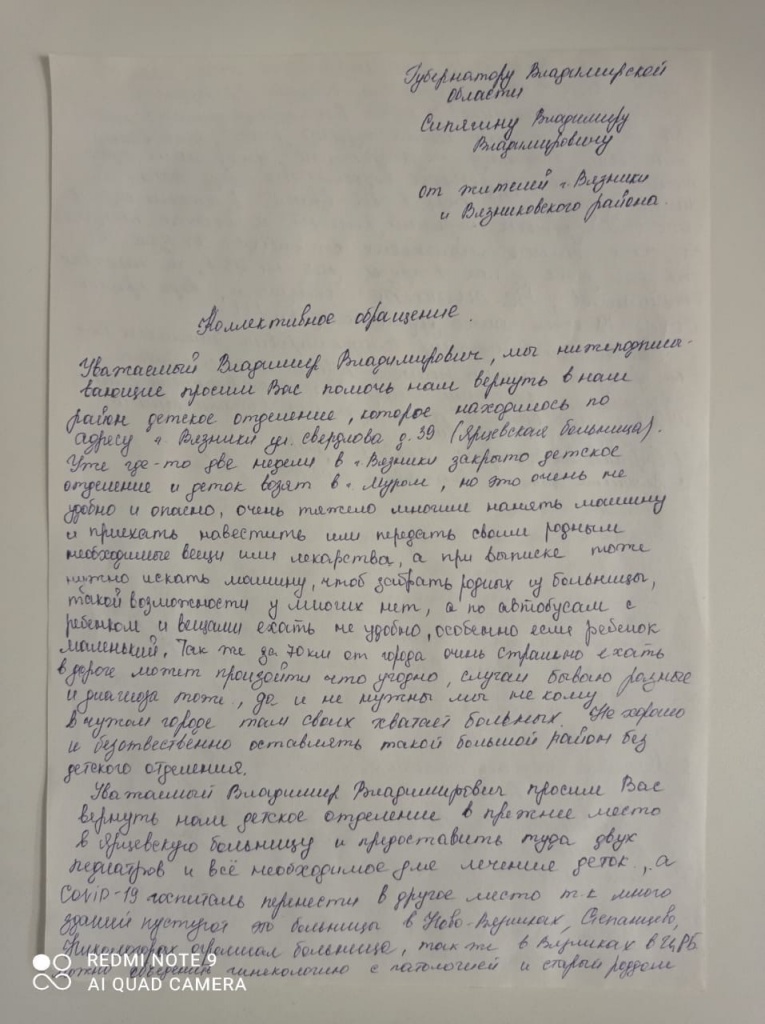 Губернатору Владимирской
области
Сипягину Владимиру
Владимировичу
от жителей г. Вязники
и Вязниковского района.
Коллективное обращение.
Уважаемый Владимир Владимирович, мы нижеподписа-
вающие просим Вас помочь нам вернуть в наш
район детское отделение, которое находилось по
адресу г Вязники ул. свердлова д. 39 (Ярцевская больница).
Уже где-то две недели в г Вязники закрыто детское
отделение и деток возят в г Муром, но это очень не
удобно и опасно, очень тяжело многим нанять машину
и приехать навестить или передать своим родным
необходимые вещи или лекарства, а при выписке тоже
нужно искать машину, чтоб забрать родных из больницы,
такой возможности у многих нет, а по автобусам с
ребенком и вещами ехать не удобно, особенно если ребенок
маленький. Так же за 70 км от города очень страшно ехать
в дороге может произойти что угодно, случаи бываю разные
и диагноза тоже, да и не нужны мы не кому
в чужом городе там своих хватает больных. Не хорошо
и безответственно оставлять такой большой район без
детского отделения.
Уважаемый Владимир Владимирович просим Вас
вернуть нам детское отделение в прежнее место
в Ярцевскую больницу и предоставить туда двух
педиатров и всё необходимое для лечения деток, а
COVID-19 госпиталь перенести в другое место т.к много
зданий пустуют это больницы в Ново-Вязниках, Степанцево,
больница, так же в Вязниках в ЦРБ
можно гинекологию с патологией и старый роддом
REDMI NOTE 9
AI QUAD CAMERA